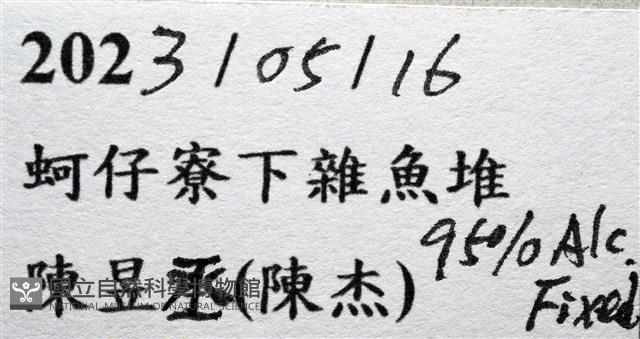 2023/05/16
蚵仔寮下雜魚堆
陳昱丞(陳杰)
95% Alc.
Fixed
國立自然科學博物館
NATIONAL MUSEUM OF NATURAL SCIENCE